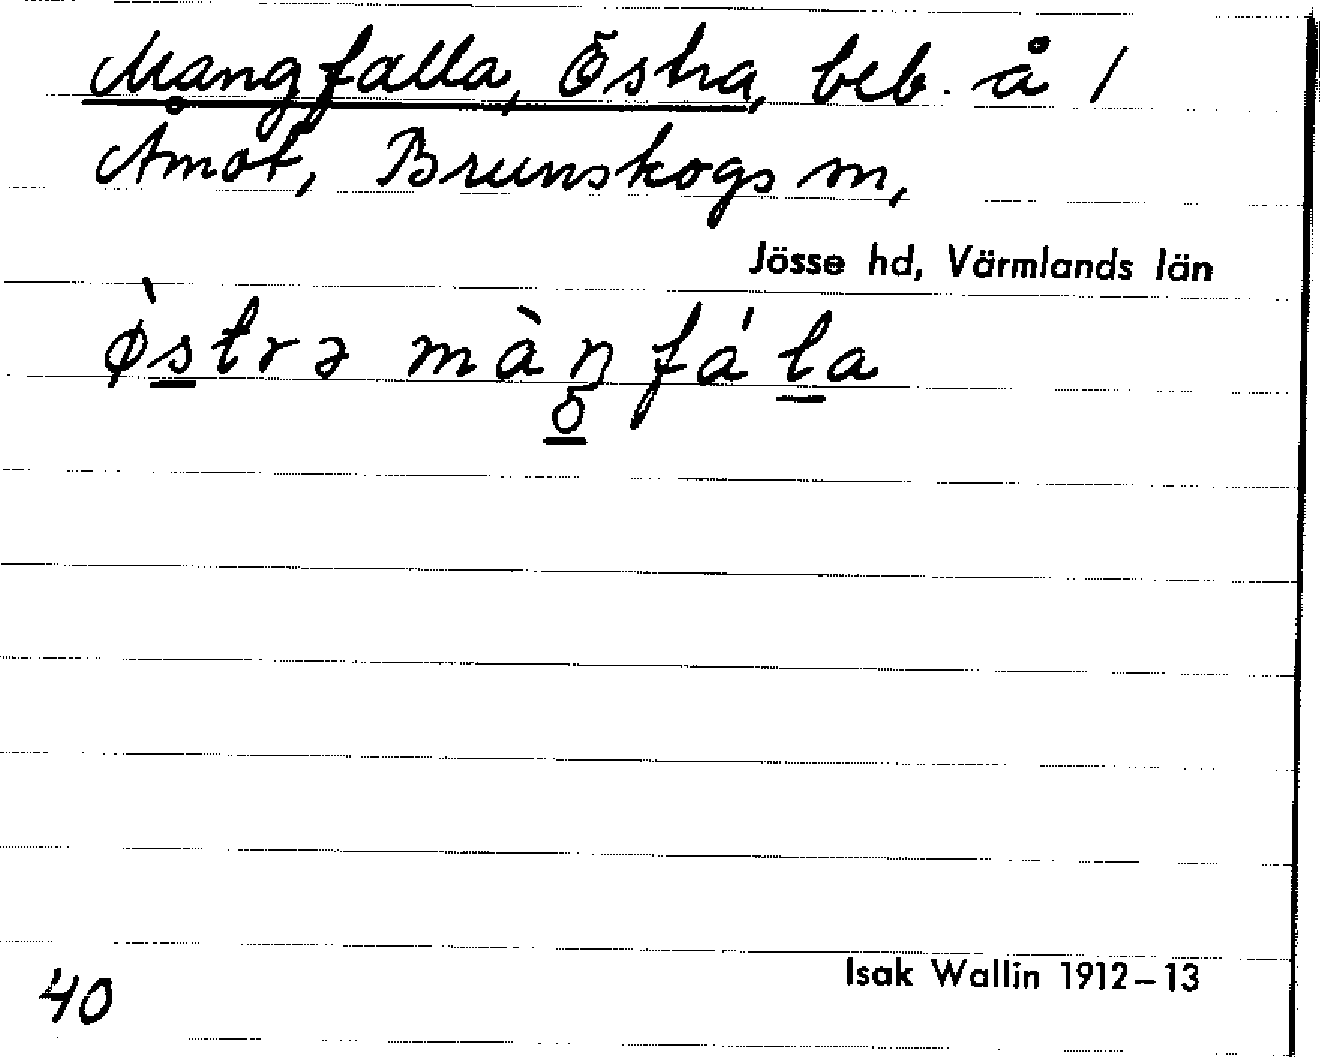 Mangfalla, Östra, beb. å 1
Åmot, Brunskogs sn,
Jösse hd, Värmlands län
ø̀strə màŋ̥fála
40
Isak Wallin 1912–13